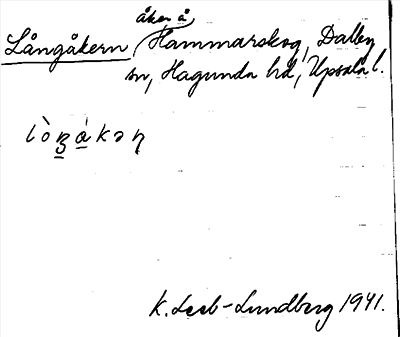 åker å
Långåkern, Hammarskog, Dalby
sn, Hagunda hd, Upsala l.
lòŋákəṇ
K. Leeb-Lundberg 1941.